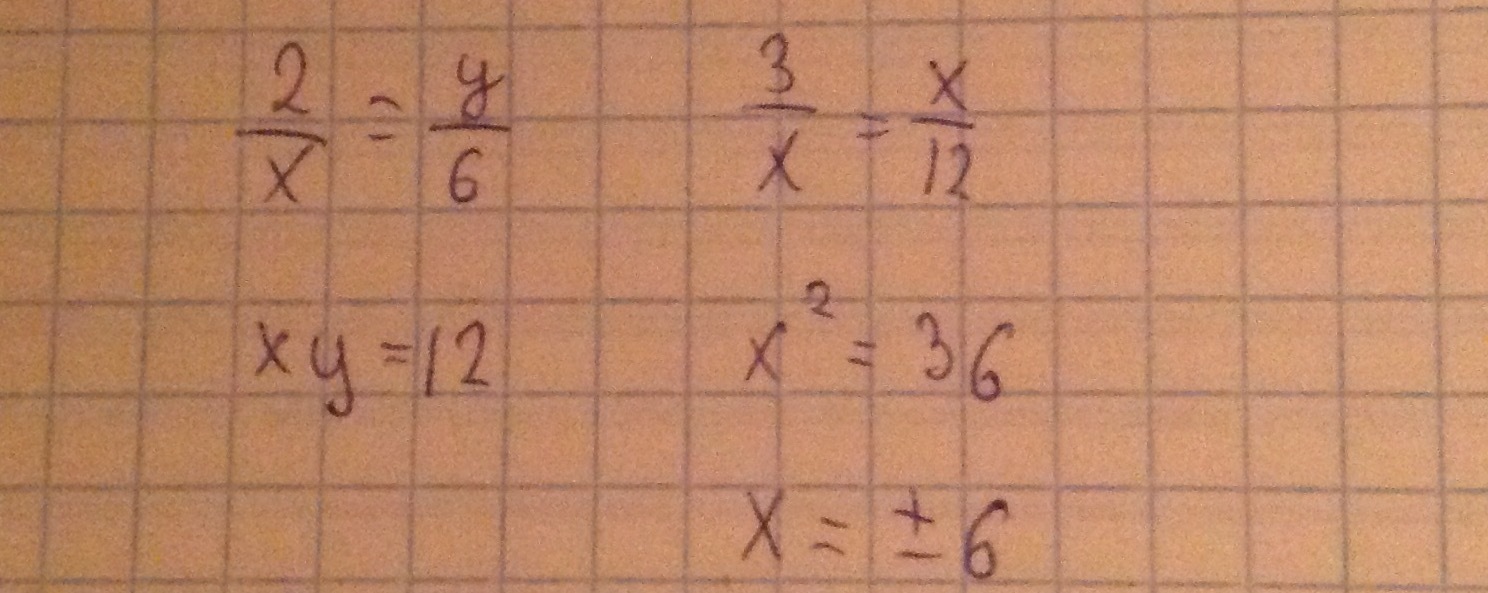 2/x = y/6
xy = 12
3/x = x/12
x² = 36
x = ± 6